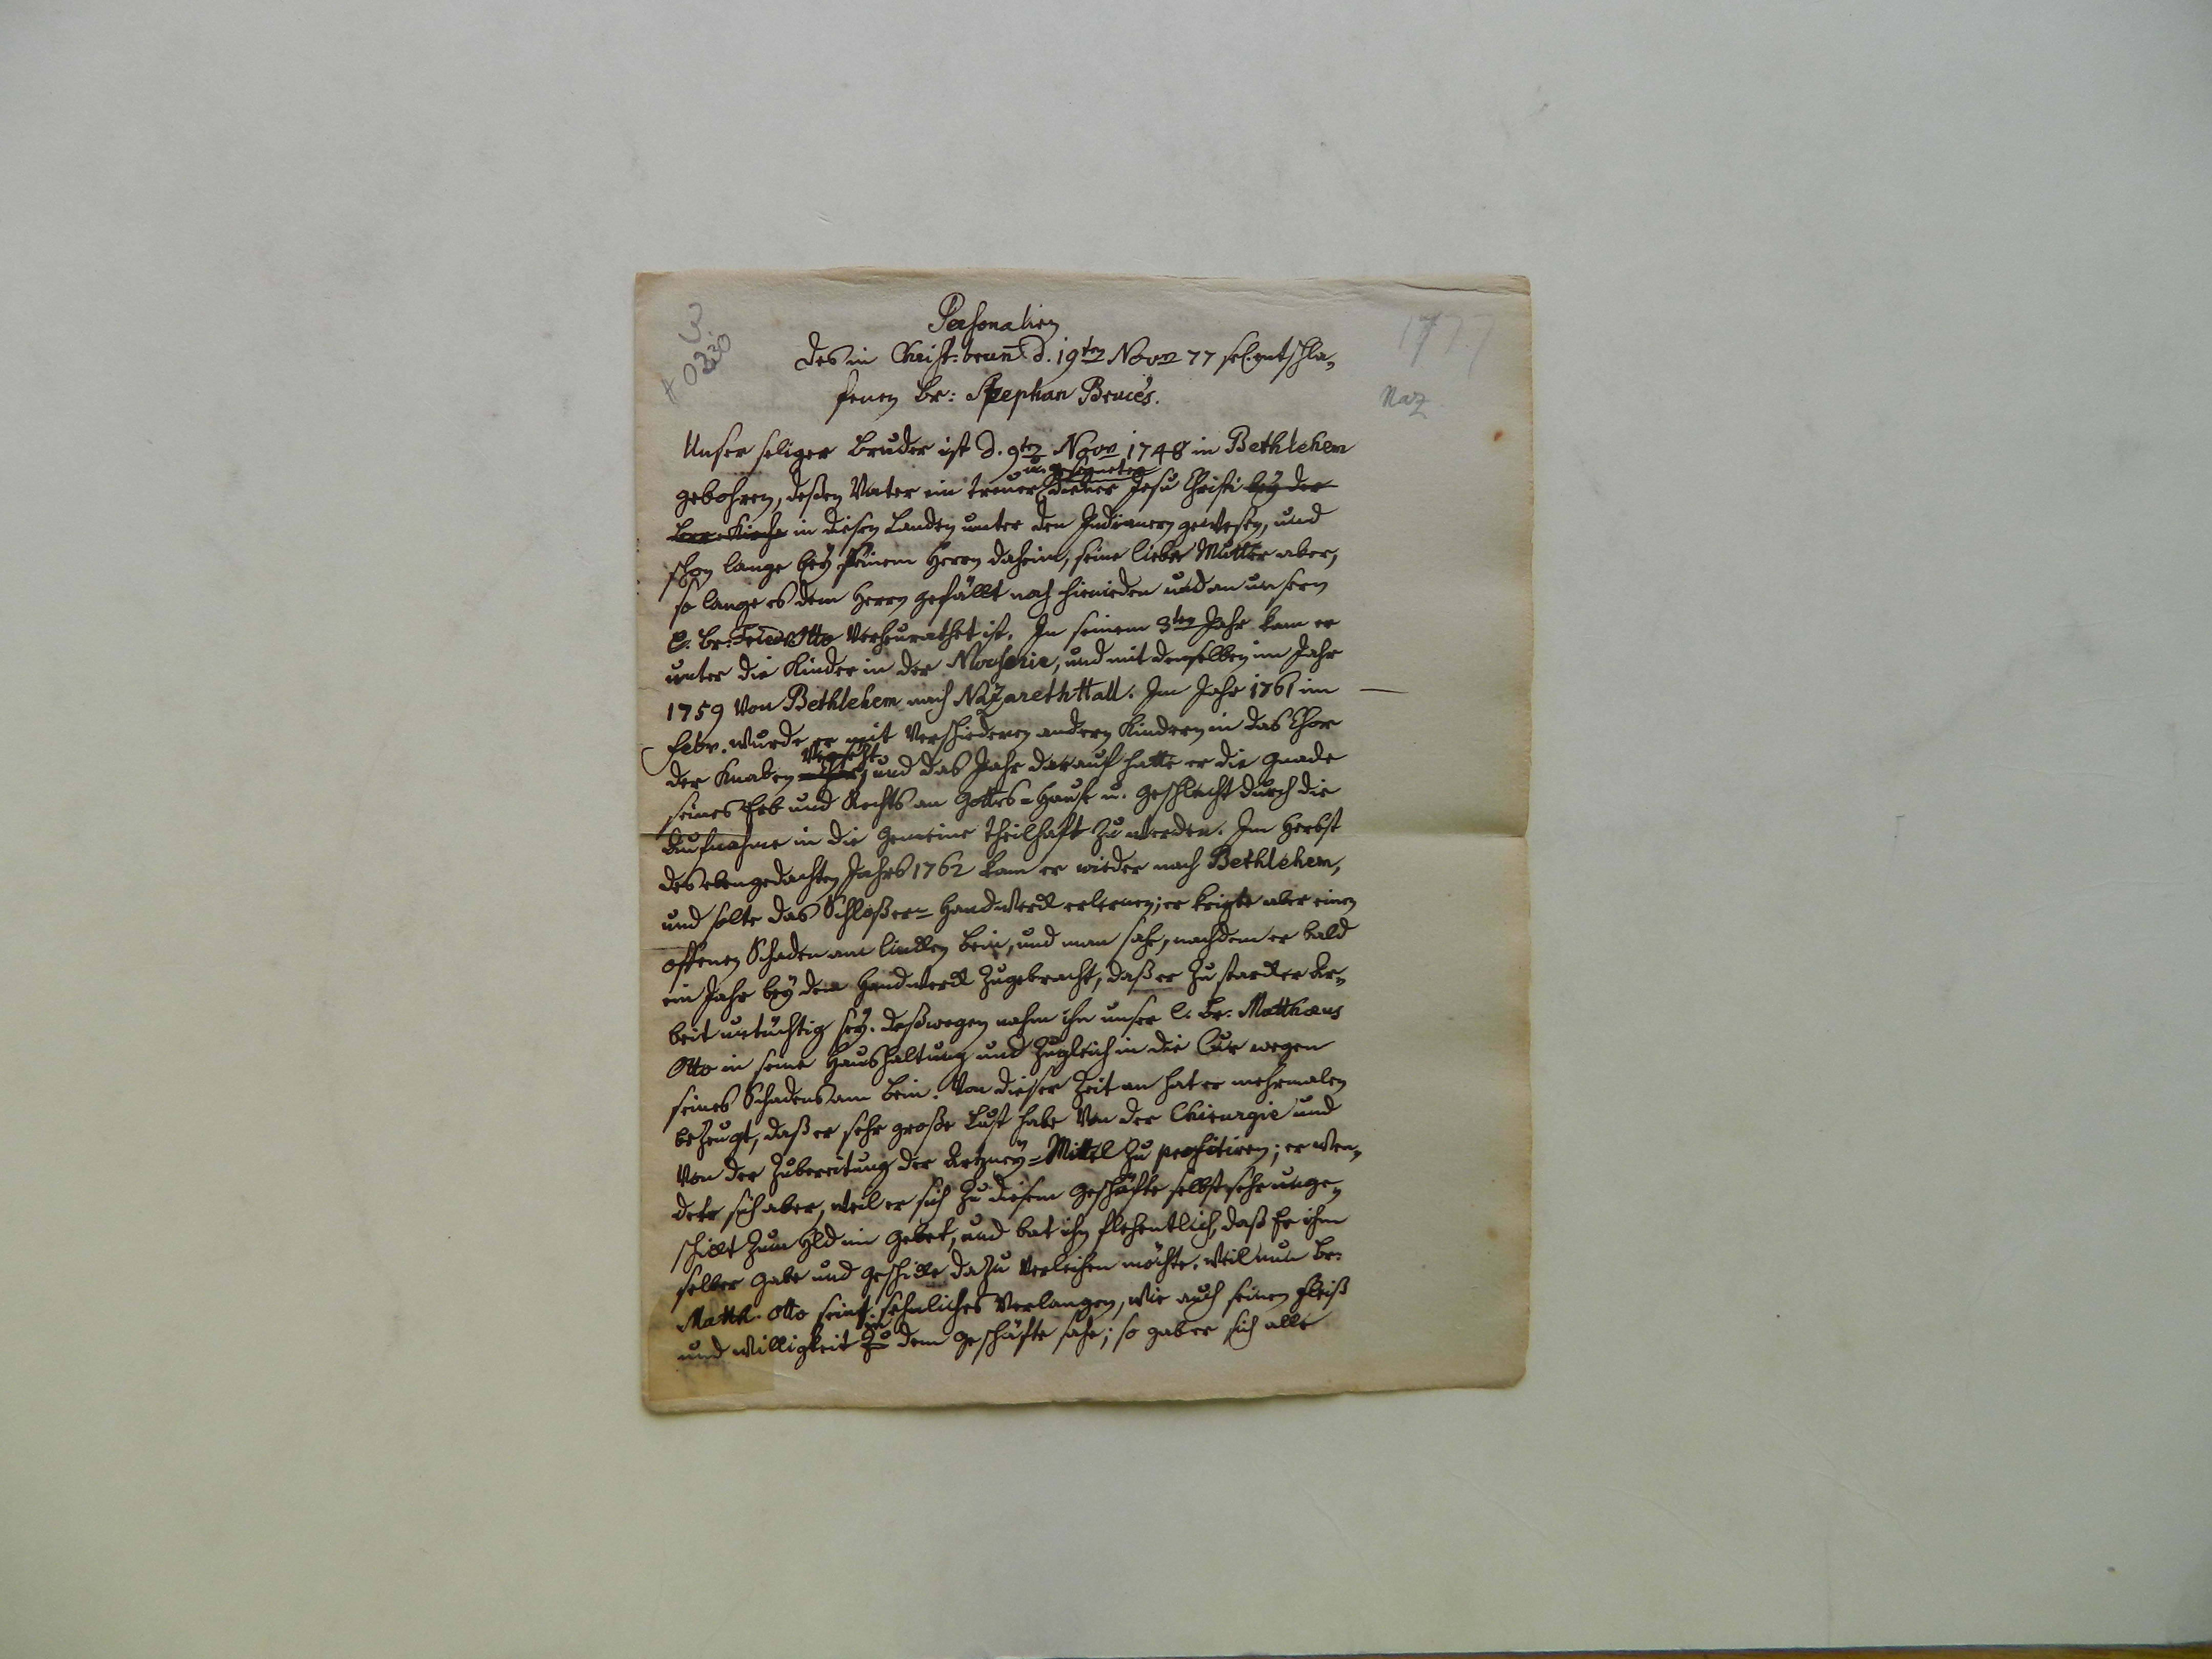 3
# 0230
1777
Naz
Personalien
des in Christ-brunn d. 19ten Novr 77 sel. entschla-
fenen Br: Stephan Bruce's.
Unser seliger Bruder ist d. 9ten Novr 1748 in Bethlehem
u. gesegneter
gebohren, deßen Vater ein treuer Diener Jesu Christi bey der
Brr. Kirche in diesen Landen unter den Indianern gewesen, und
schon lange bey seinem Herrn daheim, seine liebe Mutter aber,
so lange es dem Herrn gefällt noch hienieden und an unsern
l. Br: Fried. Otto verheurathet ist. In seinem 3ten Jahr kam er
unter die Kinder in der Noserie, und mit denselben im Jahr
1759 von Bethlehem nach NazarethHall. Im Jahr 1761 im
Febr. wurde er mit verschiedenen andern Kindern in das Chor
versetzt
der Knaben und das Jahr darauf hatte er die Gnade
seines Erb und Rechts an Gottes-Hause u. Geschlecht durch die
Aufnahme in die Gemeine theilhaft zu werden. Im Herbst
des ebengedachten Jahrs 1762 kam er wieder nach Bethlehem,
und solte das Schloßer-Handwerck erlernen; er kriegte aber einen
offenen Schaden am lincken Bein, und man sahe, nachdem er bald
ein Jahr bey dem Handwerck zugebracht, daß er zu starcker Ar-
beit untüchtig sey. Deßwegen nahm ihn unser l. Br. Matthæus
Otto in seine Haushaltung und zugleich in die Cur wegen
seines Schadens am Bein. Von dieser Zeit an hat er mehrmalen
bezeugt, daß er sehr große Lust habe von der Chirurgie und
von der Zubereitung der Arzney-Mittel zu profitiren; er wen-
dete sich aber, weil er sich zu diesem Geschäfte selbst sehr unge-
schickt zum Hld im Gebet, und bat ihn flehentlich, daß Er ihm
selber Gabe und Geschicke dazu verleihen möchte. Weil nun Br:
Matth. Otto sein sehnliches Verlangen, wie auch seinen Fleiß
in
und Willigkeit zu dem Geschäfte sahe; so gab er sich alle